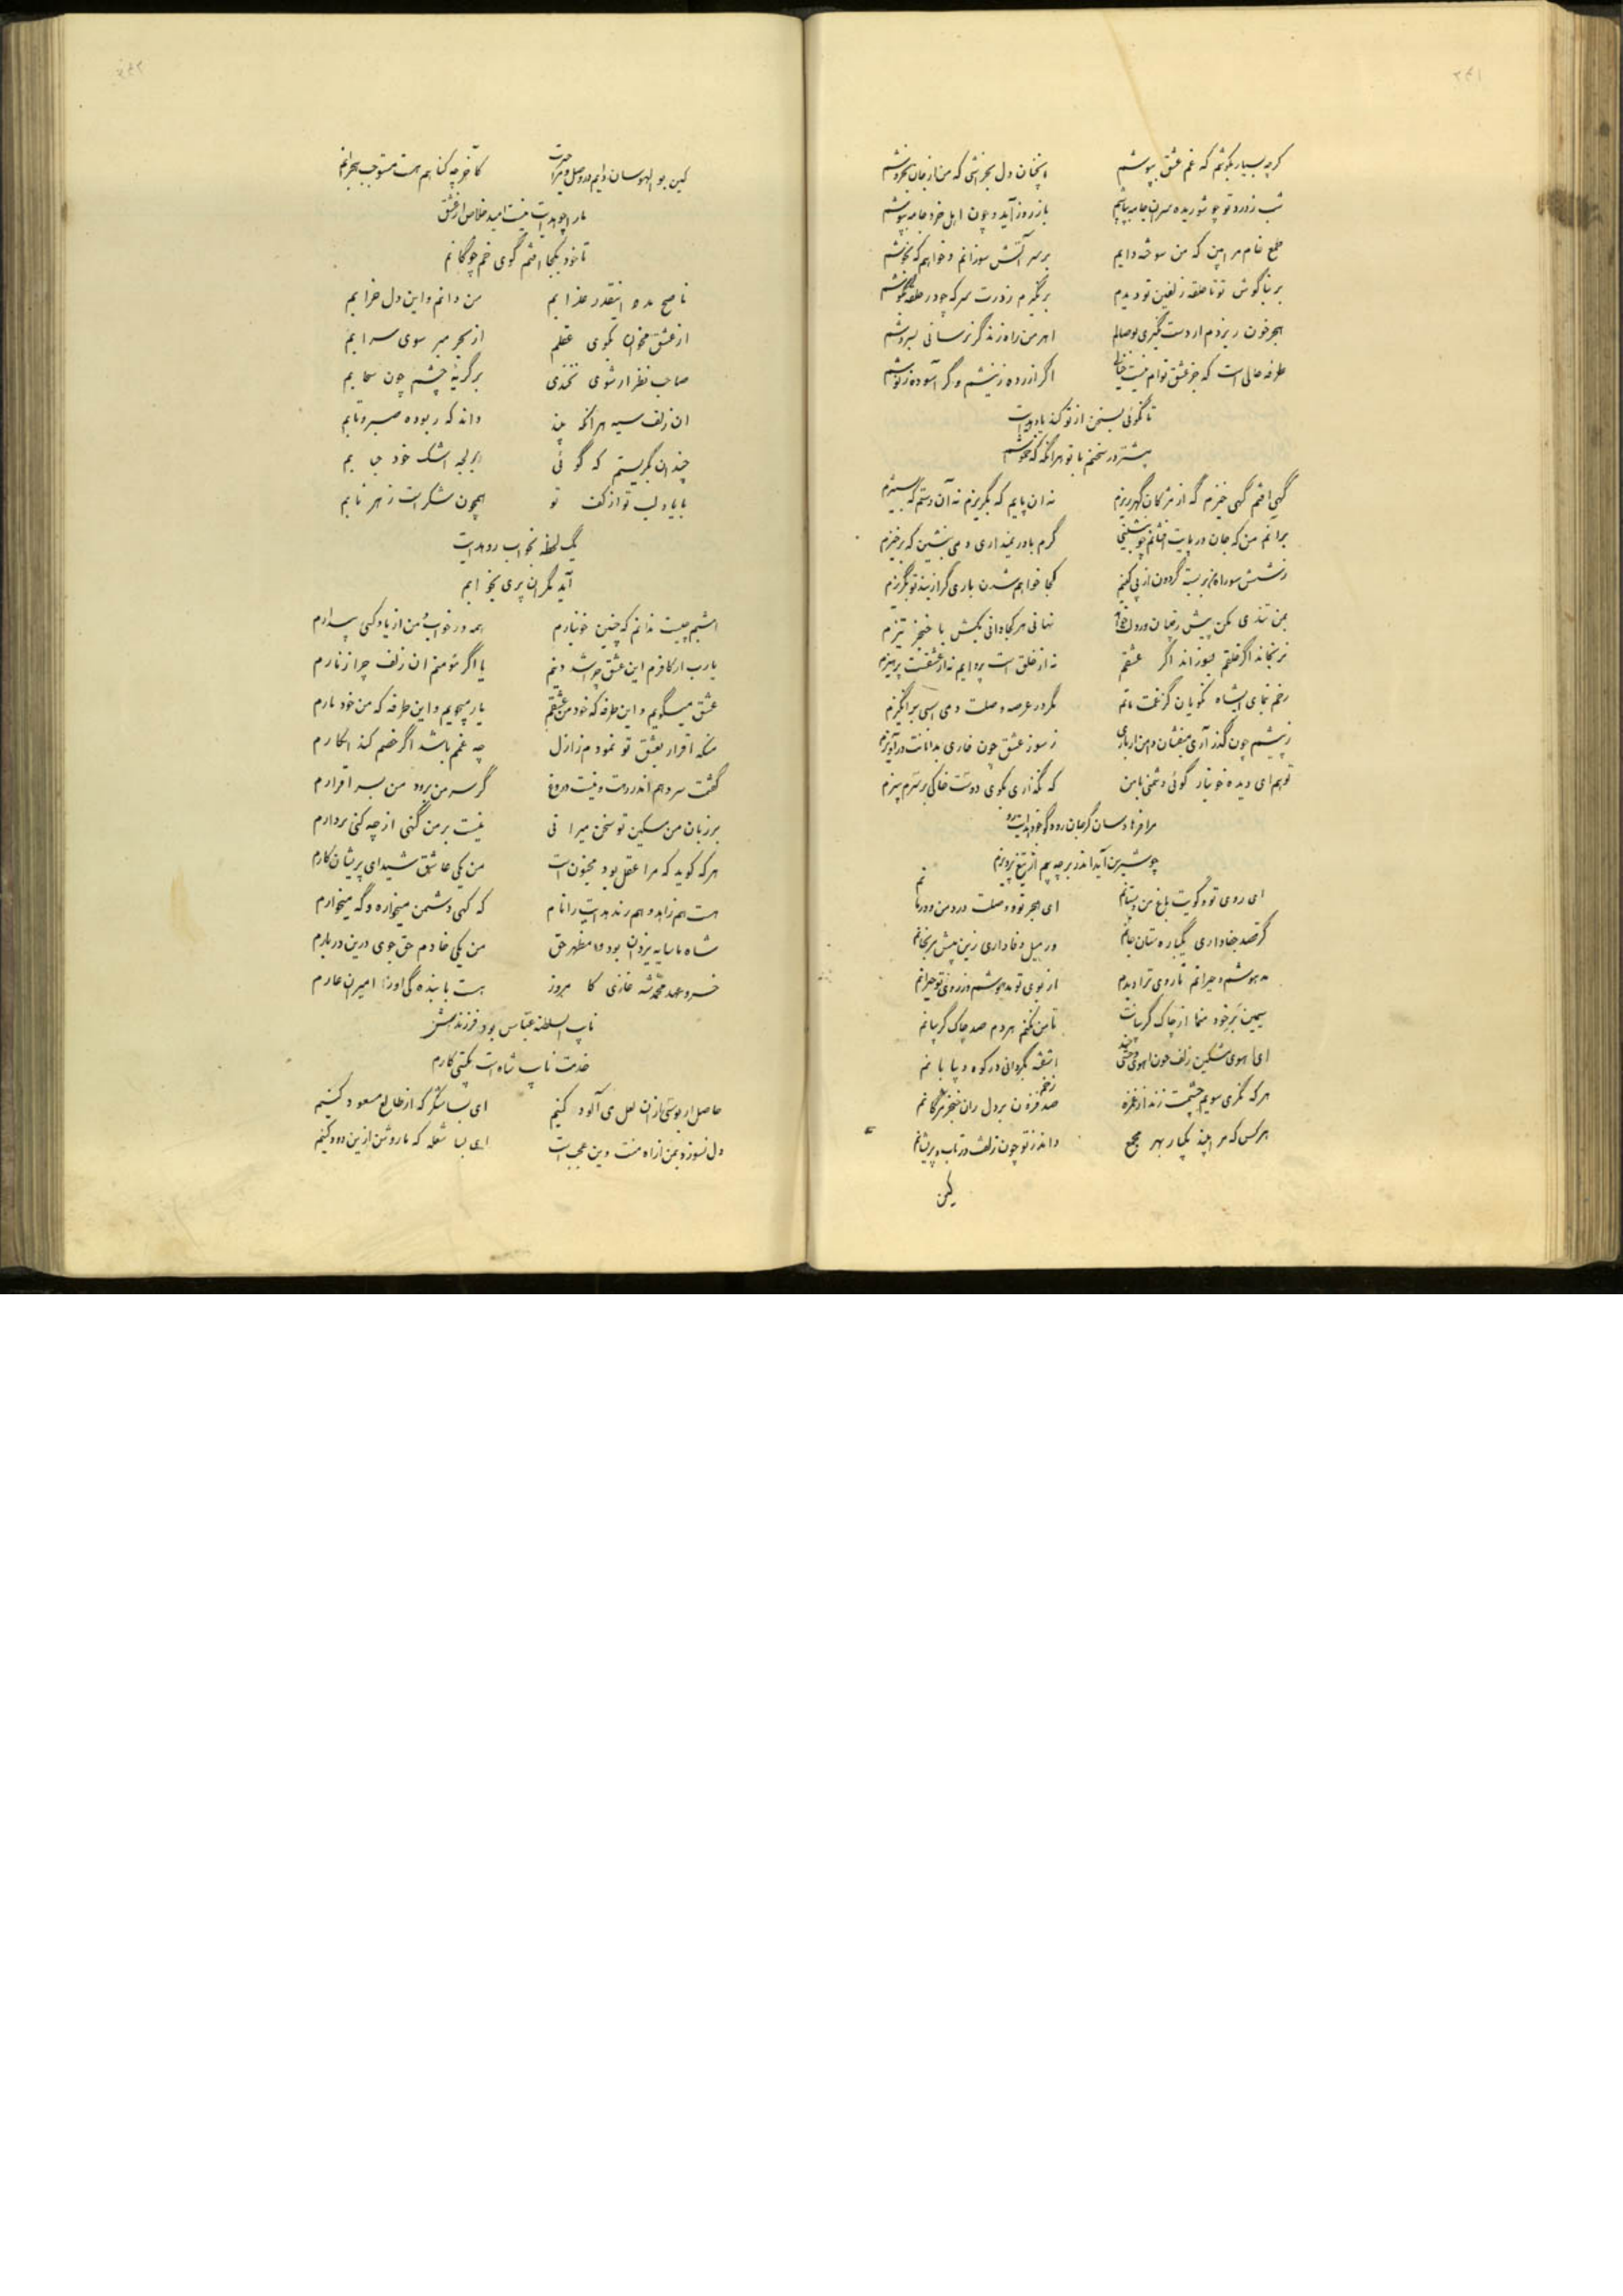 گرچه بسیار بکوشم که غم عشق بپوشم
آنچنان دل بخراشی که من از جان بخروشم
شب ز درد تو چو شوریده سران جامه
باز روز آید و چون اهل خرد جامه بپوشم
طمع خام مرا بین که من سوخته دایم
بر سر آتش سوزانم و خواهم که نجوشم
بر بناگوش تو تا حلقه زلفین تو دیدم
بر نگیرم ز درت سر که چو در حلقه
هجر خون ریزدم ار دست نگیری بوصالم
اهرمن راه زند گر نرسانی بسروشم
طرفه حالی است که جز عشق توام نیست خیالی
اگر آزرده ز نیشم و گر آسوده ز نوشم
تا نگوئی بسخن از تو کند یاد هدایت
بیشتر در سخنم با تو هر آنگه که خموشم
گهی افتم گهی خیزم گه از مژگان گهر ریزم
نه آن پایم که بگریزم نه آن دستم که بستیزم
بر آنم من که جان در پایت افشانم چو بنشینی
گرم باور نمیداری دمی بنشین که برخیزم
ز شش سو راه بر بسته گردون از پی کینم
کجا خواهم شدن باری گر از بند تو بگریزم
بمن تندی مکن پیش رقیبان
نهانی هر کجا دانی بکش با خنجر تیزم
نرنجاند اگر خلقم بسوزاند اگر عشقم
نه از خلق است پروایم نه از عشقست پرهیزم
رخم بنمای ایشاه نکویان گر نخست ماتم
مگر در عرصه وصلت دمی اسبی برانگیزم
ز پیشم چون گذر آری میفشان دامن ار باری
ز سوز عشق چون خاری بدامانت در آویزم
توهم ای دیده خونبار گوئی دشمنی با من
که نگذاری بکوی دوست خاکی بر سرم بیزم
مرا فرهاد سان گر جان رود گو خود هدایت رو
چو شیرین آید اندر بر چه بیم از تیغ پرویزم
ای روی تو و کویت باغ من و بستانم
ای هجر تو و وصلت درد من و درمانم
گر قصد جفا داری یکباره ستان جانم
ور میل وفاداری زین بیش مرنجانم
مدهوشم و حیرانم تا روی ترا دیدم
از بوی تو مدهوشم وز روی تو حیرانم
سیمین بر خود منما از چاک گریبانت
تا من نکنم هر دم صد چاک گریبانم
ای آهوی مشکین زلف چون آهوی وحشی چند
آشفته بگردانی در کوه و بیابانم
هر که نگری سویم چشمت زند از غمزه
صد زخم فزون بر دل زان خنجر مژگانم
هر کس که مرا بیند یکبار بهر مجمع
داند ز تو چون زلفت در تاب و پریشانم
کین
کین بو الهوسان دایم در وصل و مرا حسرت
کآخر چه گناهم هست مستوجب هجرانم
ما را چو هدایت نیست امید خلاص از عشق
تا خود بکجا افتم گوی خم چوگانم
ناصح مده اینقدر عذابم
من دانم و این دل خرابم
از عشق مخوان بکوی عقلم
از بحر مبر سوی سرابم
صاحب نظر ار شوی نخندی
بر گریه چشم چون سحابم
آن زلف سیه هر آنکه بیند
داند که ربوده صبر و تابم
چندان بگریستم که گوئی
بر لجه اشک خود حبابم
با یاد لب تو از کف تو
همچون شکر است زهر نابم
یک لحظه بخواب رو هدایت
آید مگر آن پری بخوابم
امشبم چیست ندانم که چنین خونبارم
همه در خواب و من از یاد کسی بیدارم
یا رب ار کافرم این عشق چرا شد دینم
یا اگر مؤمنم آن زلف چرا زنارم
عشق میگویم و این طرفه که خود من عشقم
یار میجویم و این طرفه که من خود یارم
منکه اقرار بعشق تو نمودم ز ازل
چه غمم باشد اگر خصم کند انکارم
گفت سر دهم اندر رهت و نیست دروغ
گر سر من برود من بسر اقرارم
بر زبان من مسکین تو سخن میرانی
نیست بر من گنهی از چه کنی بر دارم
هر که گوید که مرا عقل بود مجنون است
من یکی عاشق شیدای پریشان کارم
هست هم زاهد و هم رند هدایت را نام
که گهی دشمن میخواره و گه میخوارم
شاه ما سایه یزدان بود و مظهر حق
من یکی خادم حق جوی درین دربارم
خسرو عهد محمد شه غازی کامروز
هست با بندگی او ز امیران عارم
نایب السلطنه عباس بود فرزندش
خدمت نایب شاه است یکی کارم
حاصل ار بوسی از آن لعل می آلود کنیم
ای بسا شکر که از طالع مسعود کنیم
دل بسوزد بمن از آه منت وین عجب است
ای بسا شعله که ما روشن ازین دود کنیم